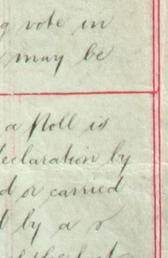 g vote in
may be
a Poll is
declaration by
d or carried
l by a